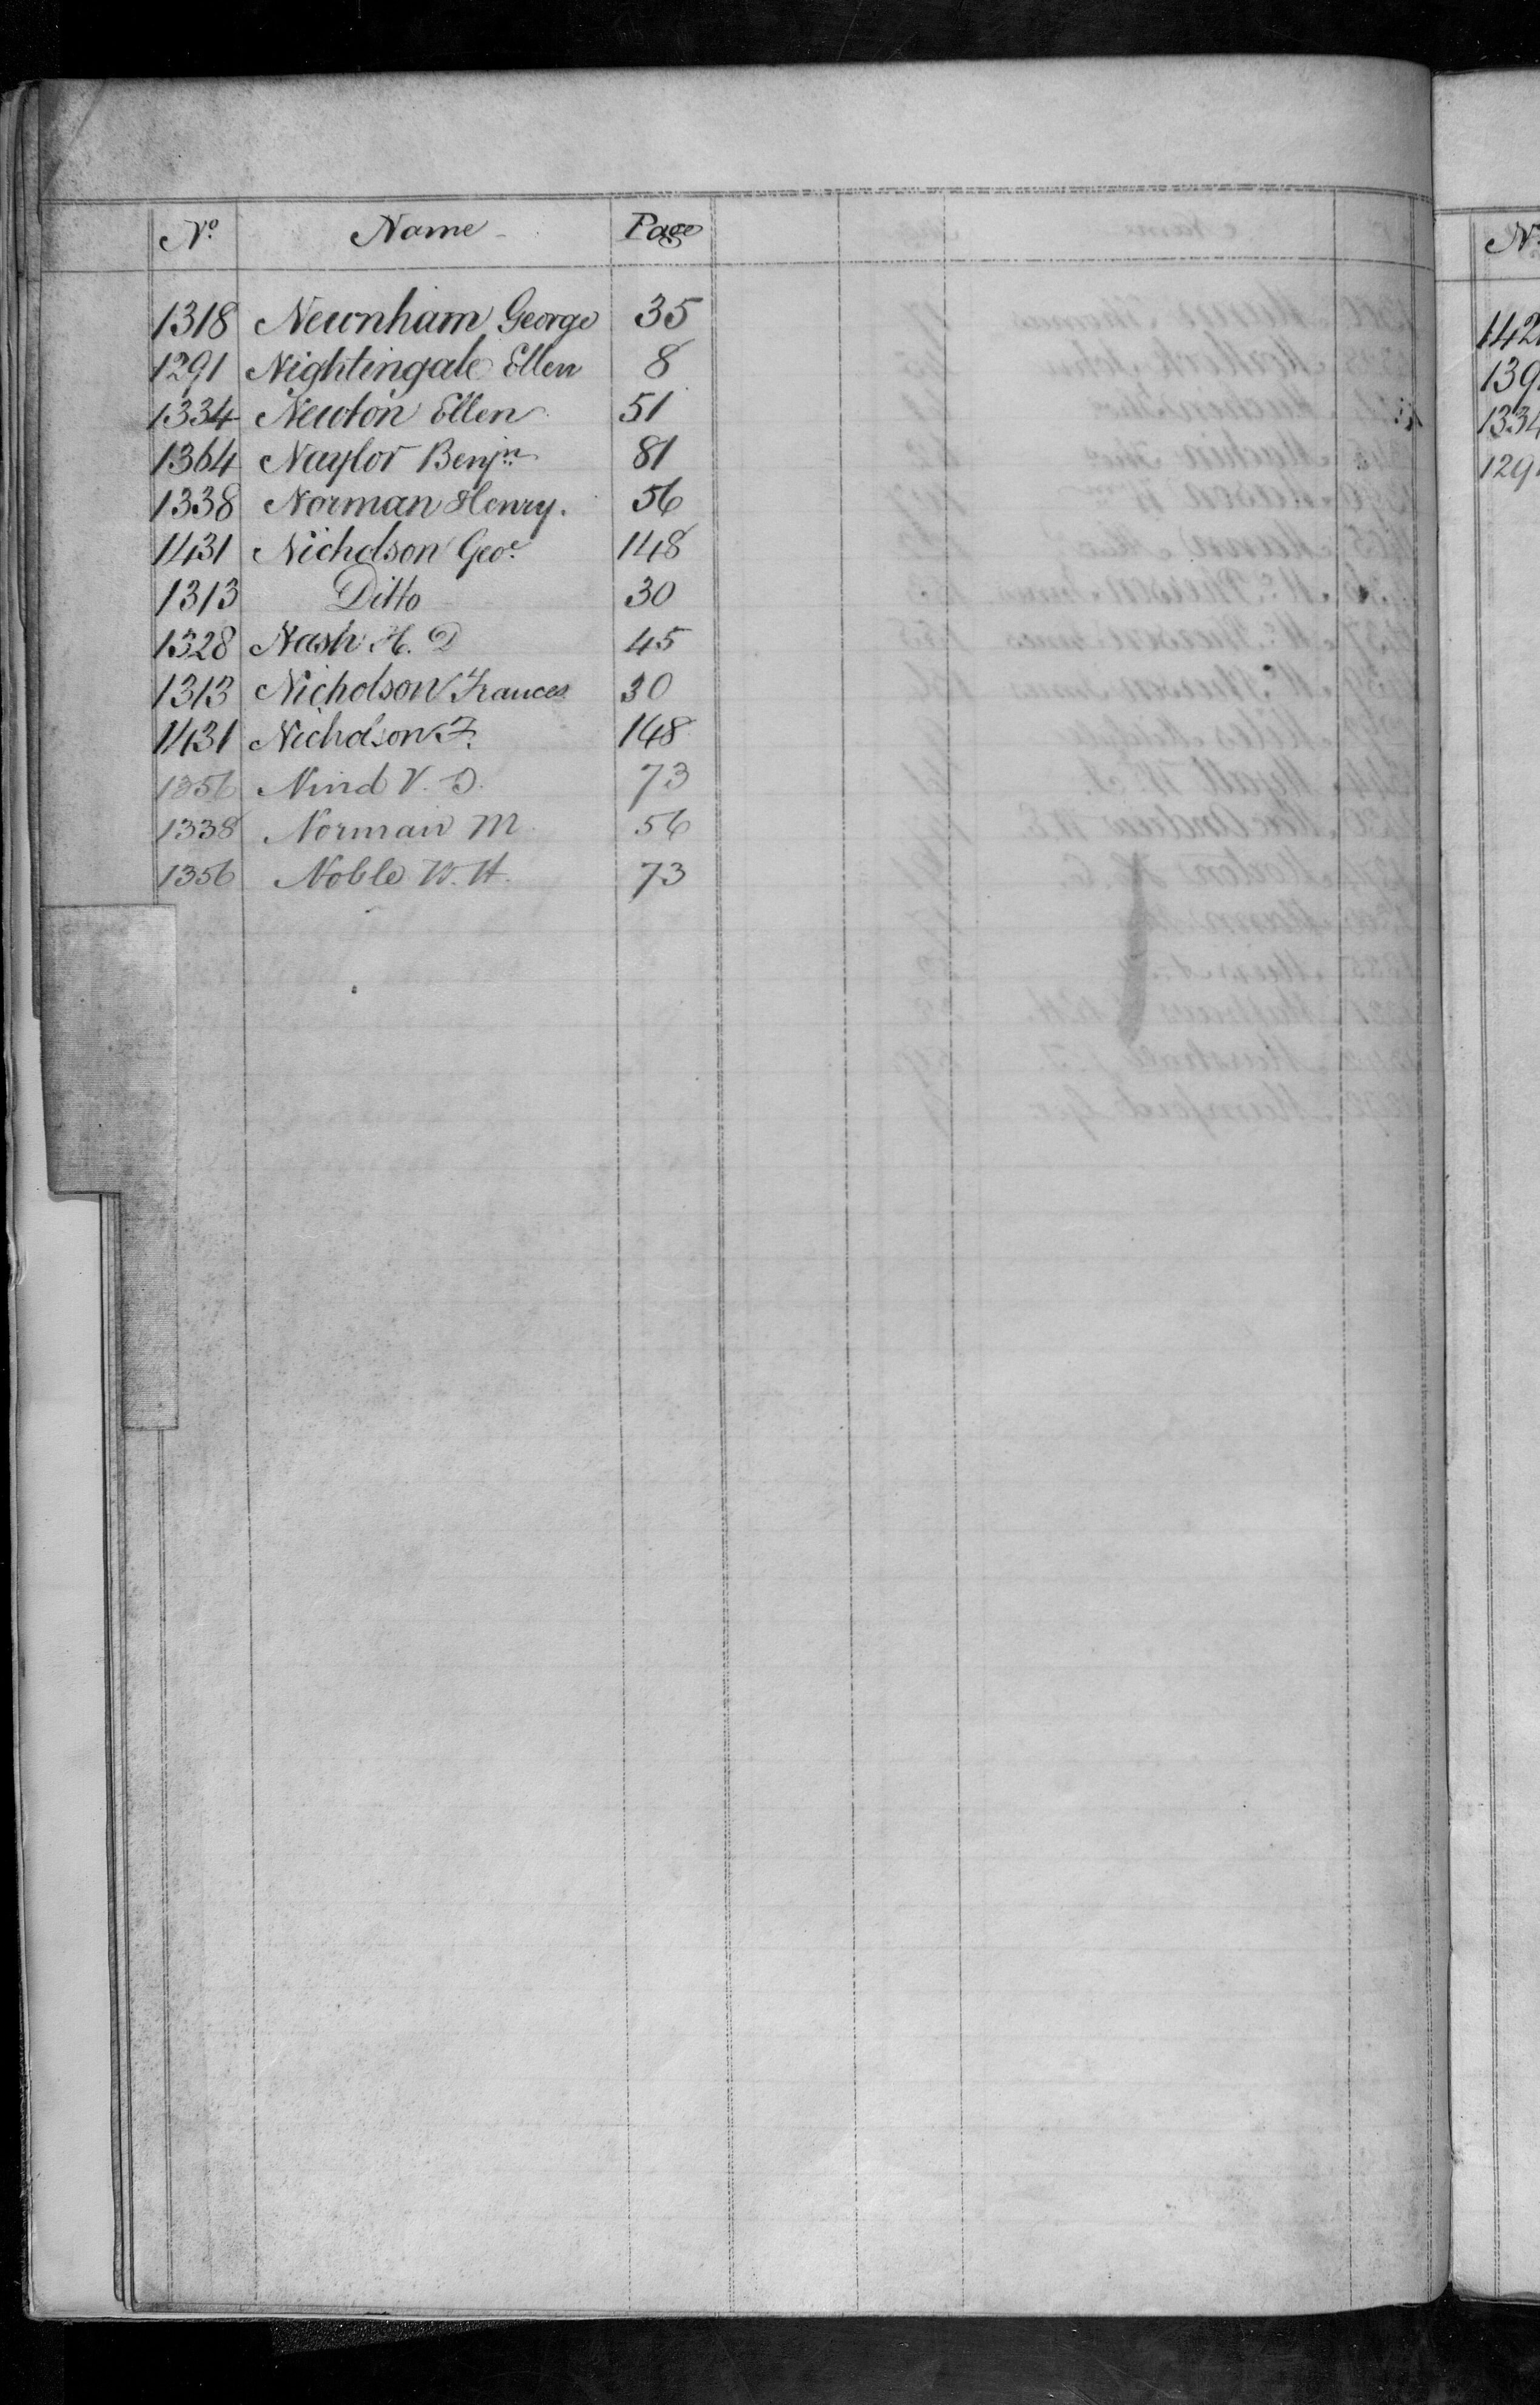 No. Name Page
1318 Newnham George 35
1291 Nightingale Ellen 8
1334 Newton Ellen 51
1364 Naylor Benjn. 81
1338 Norman Henry. 56
1431 Nicholson Geoe. 148
1313 Ditto 30
1328 Nash H. D 45
1313 Nicholson Frances 30
1431 Nicholson F. 148
1356 Nind V. D. 73
1338 Norman M 56
1356 Noble W. H. 73